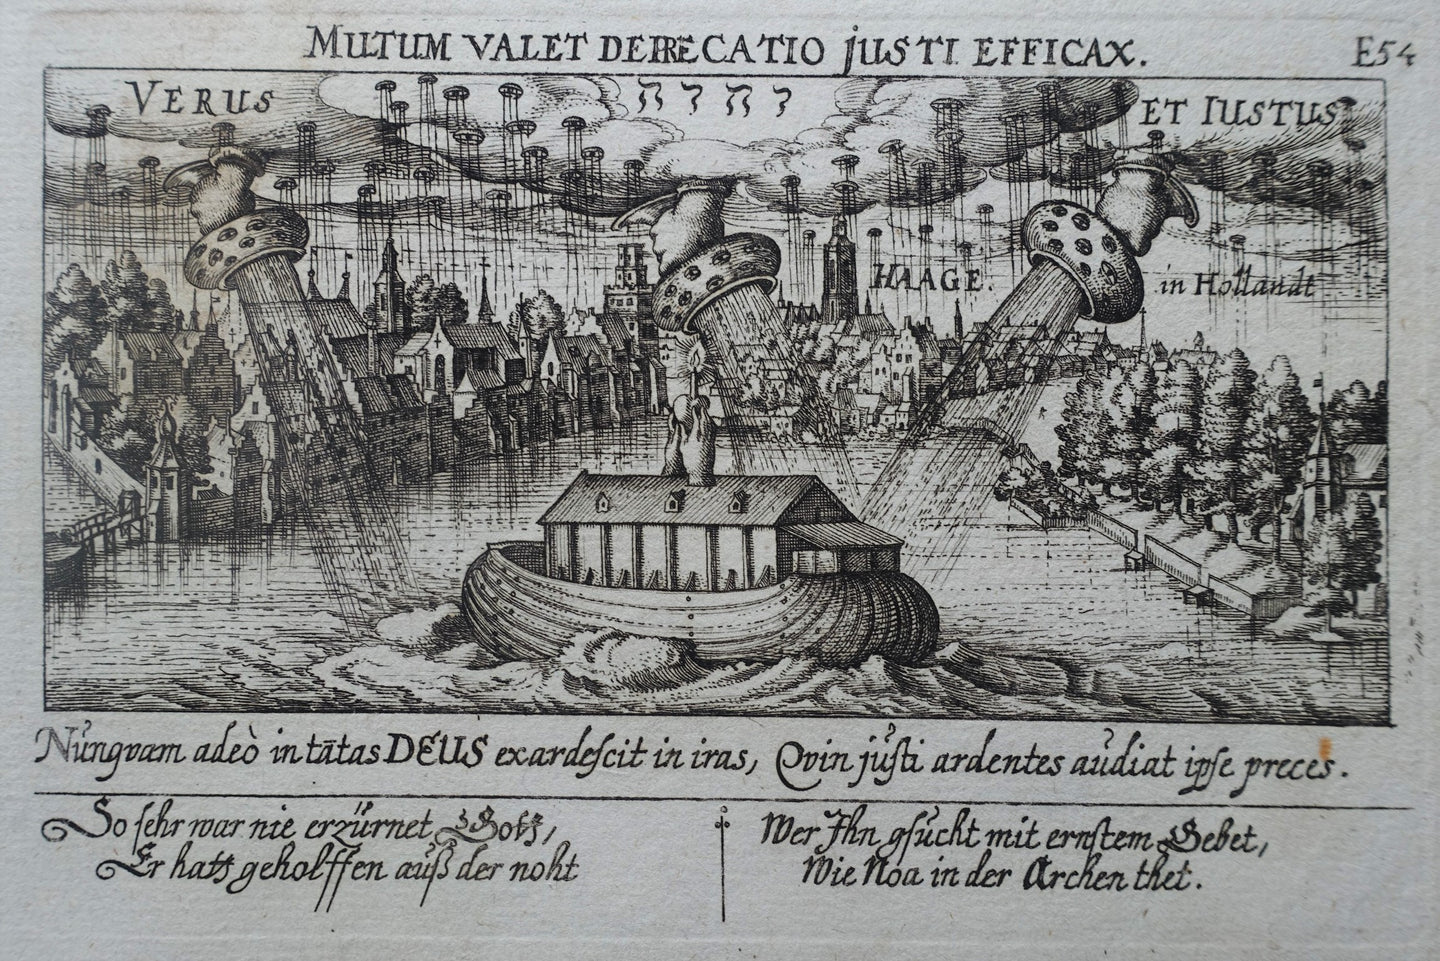 MULTUM VALET DEPRECATIO JUSTI EFFICAX. E54
VERUS יהוה ET IUSTUS
HAAGE. in Hollandt
Nunqvam adeò in tātas DEUS exardescit in iras, Qvin justi ardentes audiat ipse preces.
So sehr war nie erzürnet Gott,
Er hatt geholffen auß der noht
Wer Ihn gsucht mit ernstem Gebet,
Wie Noa in der Archen thet.